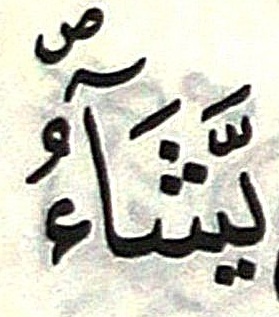 يَّشَآءُ ۖ ص